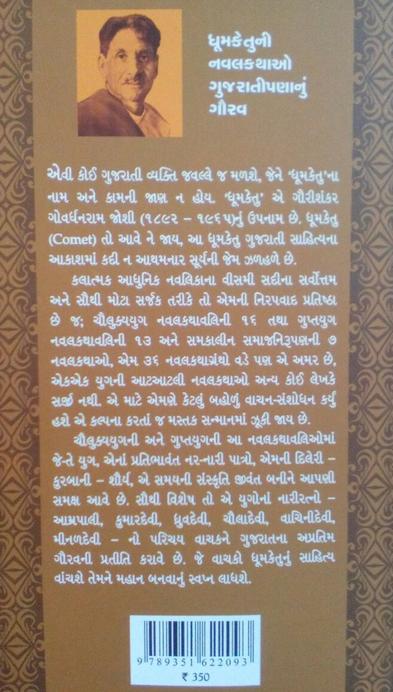 ધૂમકેતુની
નવલકથાઓ
ગુજરાતીપણાનું
ગૌરવ
એવી કોઈ ગુજરાતી વ્યક્તિ જવલ્લે જ મળશે, જેને 'ધૂમકેતુ'ના
નામ અને કામની જાણ ન હોય. 'ધૂમકેતુ' એ ગૌરીશંકર
ગોવર્ધનરામ જોશી (૧૮૯૨ – ૧૯૬૫)નું ઉપનામ છે. ધૂમકેતુ
(Comet) તો આવે ને જાય, આ ધૂમકેતુ ગુજરાતી સાહિત્યના
આકાશમાં કદી ન આથમનાર સૂર્યની જેમ ઝળહળે છે.
કલાત્મક આધુનિક નવલિકાના વીસમી સદીના સર્વોત્તમ
અને સૌથી મોટા સર્જક તરીકે તો એમની નિરપવાદ પ્રતિષ્ઠા
છે જ; ચૌલુક્યયુગ નવલકથાવલિની ૧૬ તથા ગુપ્તયુગ
નવલકથાવલિની ૧૩ અને સમકાલીન સમાજનિરૂપણની ૭
નવલકથાઓ, એમ ૩૬ નવલકથાગ્રંથો વડે પણ એ અમર છે,
એકએક યુગની આટઆટલી નવલકથાઓ અન્ય કોઈ લેખકે
સર્જી નથી. એ માટે એમણે કેટલું બહોળું વાચન-સંશોધન કર્યું
હશે એ કલ્પના કરતાં જ મસ્તક સન્માનમાં ઝૂકી જાય છે.
ચૌલુક્યયુગની અને ગુપ્તયુગની આ નવલકથાવલિઓમાં
જે-તે યુગ, એનાં પ્રતિભાવંત નર-નારી પાત્રો, એમની દિલેરી –
કુરબાની – શૌર્ય, એ સમયની સંસ્કૃતિ જીવંત બનીને આપણી
સમક્ષ આવે છે. સૌથી વિશેષ તો એ યુગોનાં નારીરત્નો –
આમ્રપાલી, કુમારદેવી, ધ્રુવદેવી, ચૌલાદેવી, વાચિનીદેવી,
મીનળદેવી – નો પરિચય વાચકને ગુજરાતના અપ્રતિમ
ગૌરવની પ્રતીતિ કરાવે છે. જે વાચકો ધૂમકેતુનું સાહિત્ય
વાંચશે તેમને મહાન બનવાનું સ્વપ્ન લાધશે.
9 789351 622093
₹ 350